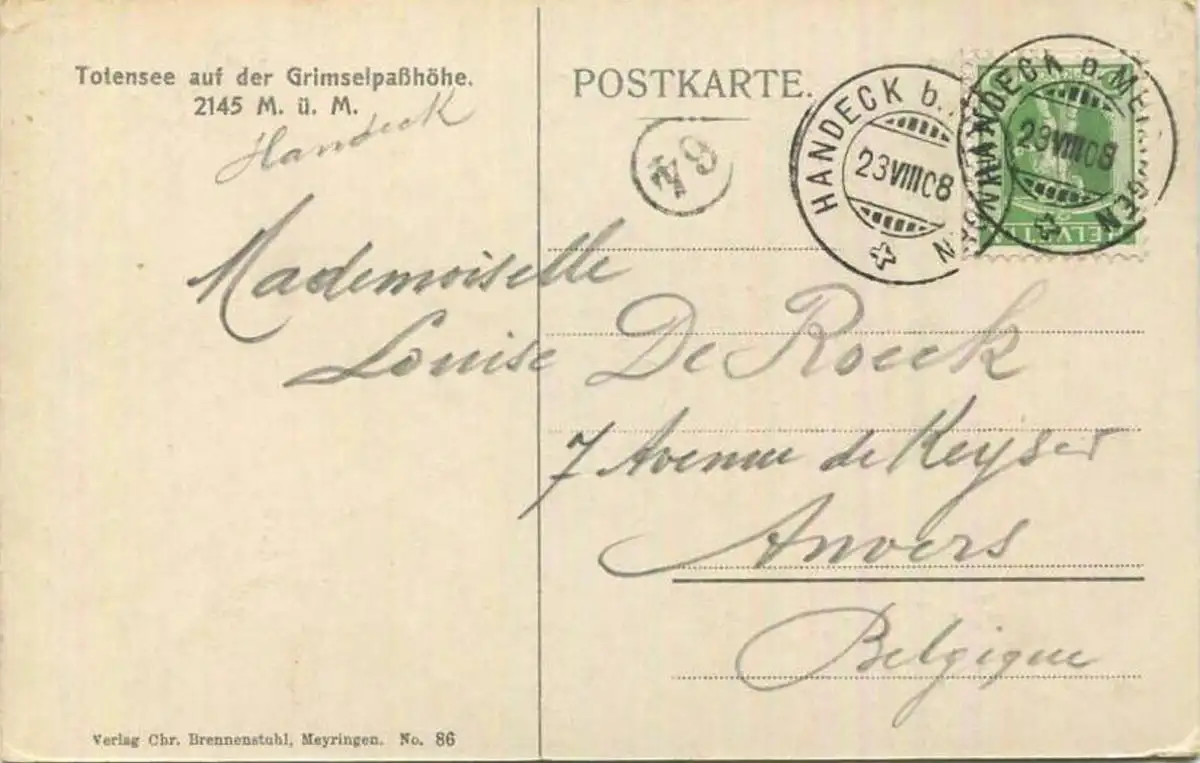 Totensee auf der Grimselpaßhöhe.
2145 M. ü. M.
Handeck
POSTKARTE.
64
HANDECK b.
23VIII08
HANDECK b. MEIRINGEN
23VIII08
HELVETIA
Mademoiselle
Louise De Roeck
7 Avenue de Keyser
Anvers
Belgique
Verlag Chr. Brennenstuhl, Meyringen. No. 86